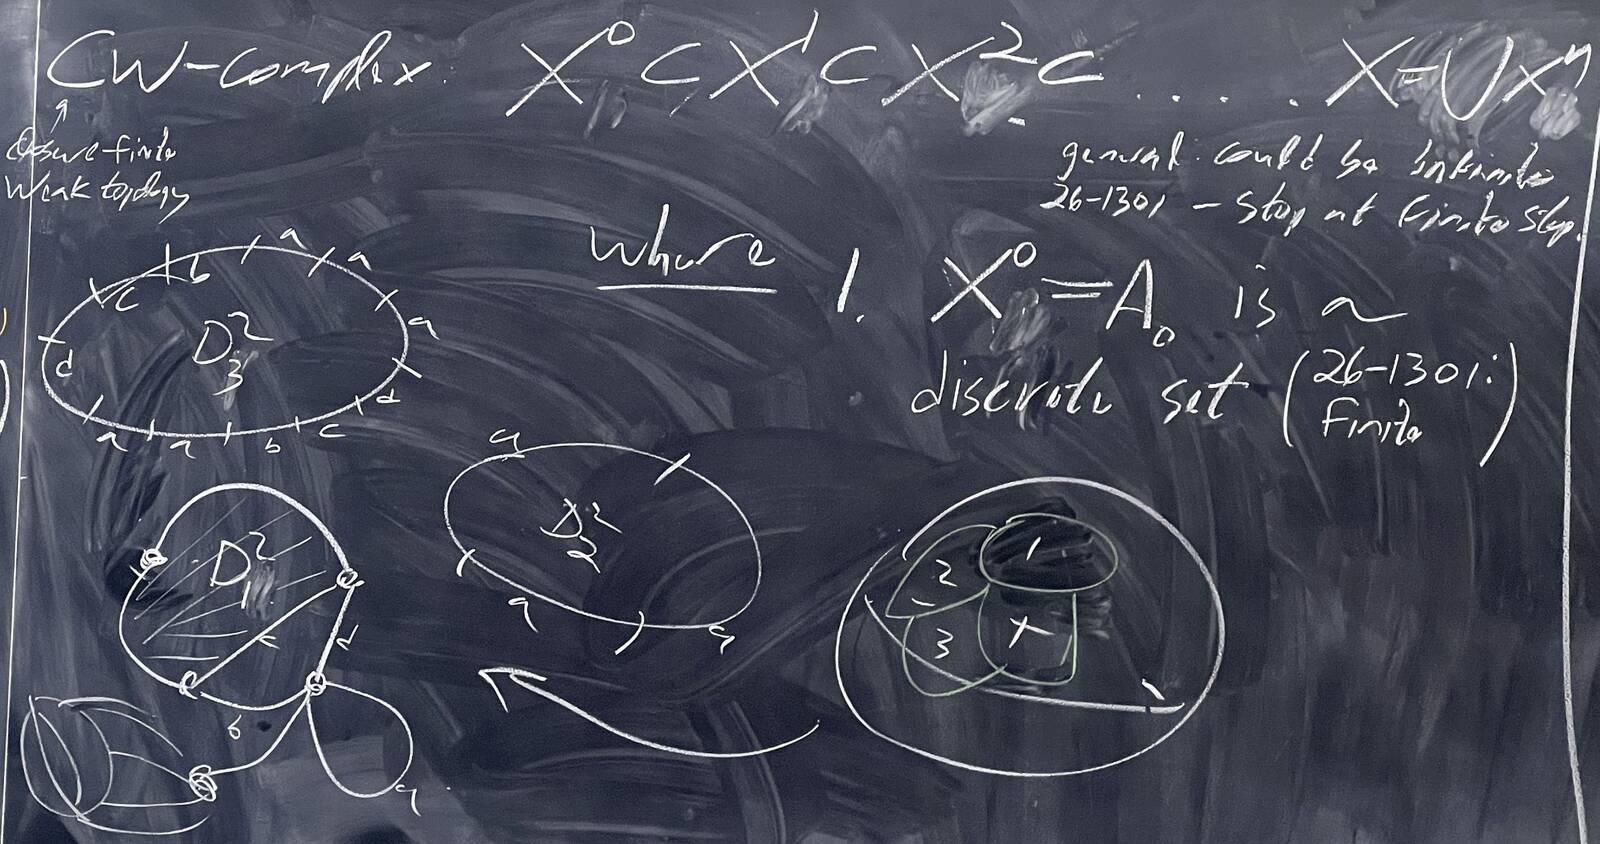 CW-complex. X⁰ ⊂ X¹ ⊂ X² ⊂ . . . . . X = ∪Xⁿ
closure-finite
Weak topology
general: could be infinite
26-1301 - stop at finite step.
where 1. X⁰ = A₀ is a
discrete set (26-1301: finite)
c b a a
d D²₃ a
a a b c d
a
D²₂
a a
D²₁
c d
b
a
1
2
3